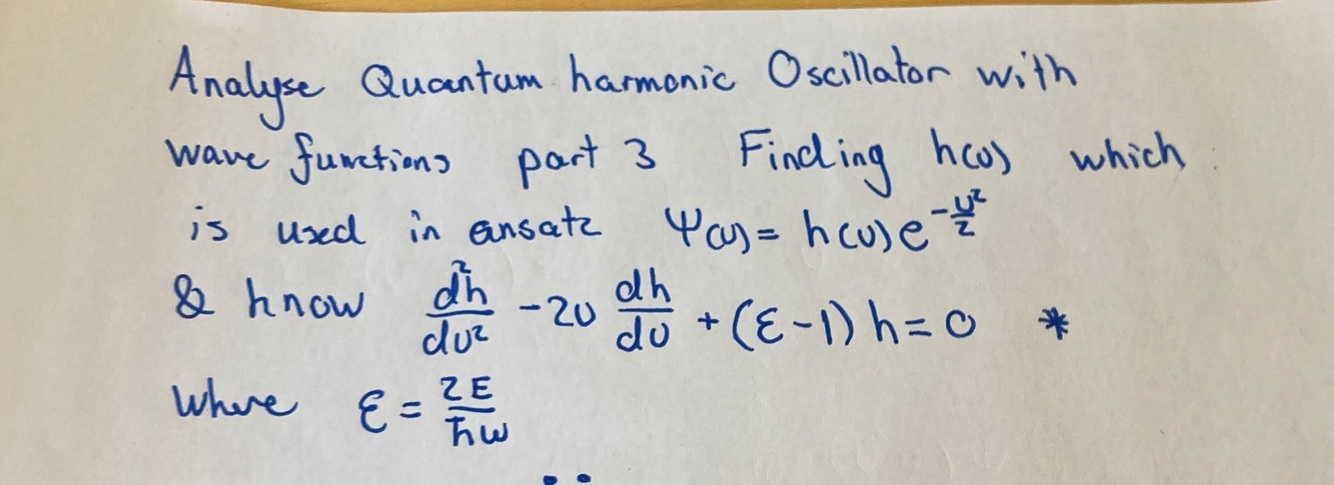 Analyse Quantum harmonic Oscillator with
wave functions part 3 Finding h(u) which
is used in ansatz Ψ(u) = h(u)e^{-u²/2}
& know d²h/du² - 2u dh/du + (ε-1)h = 0 *
where ε = 2E/ħω